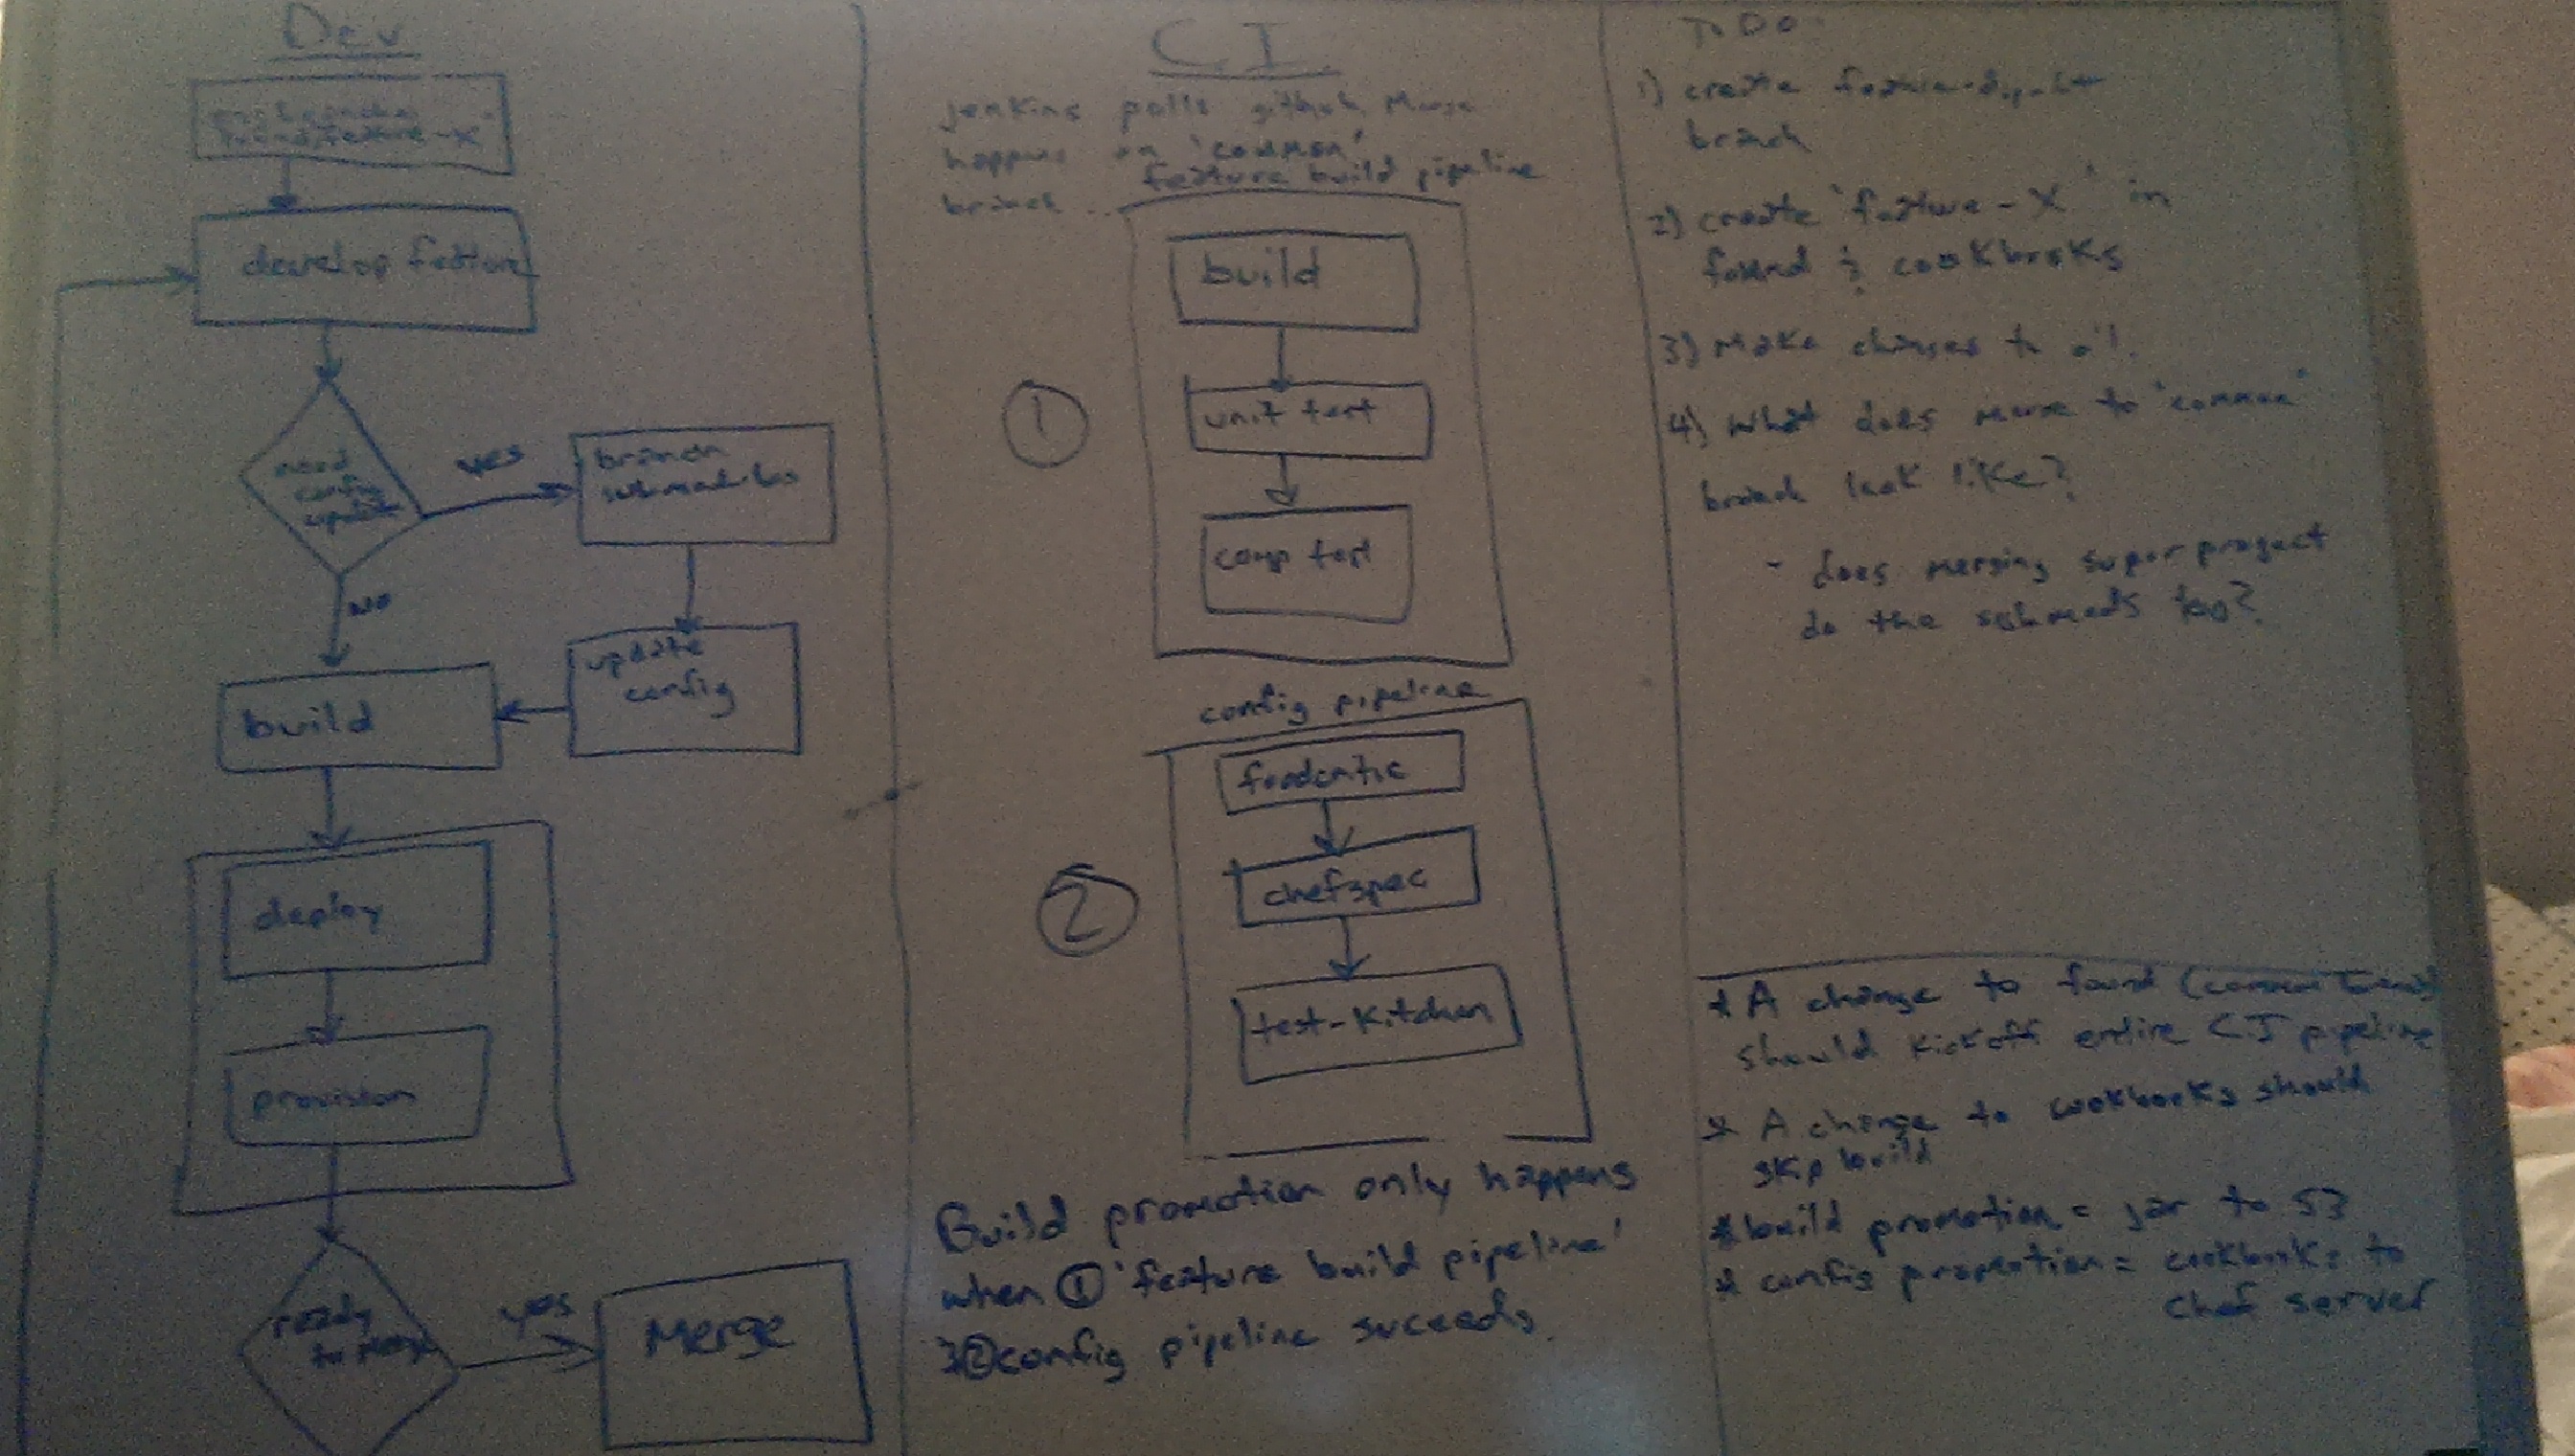 Dev
feature-X"
develop feature
need
config
update
yes
branch
submodules
NO
update
config
build
deploy
provision
ready
to merge
yes
Merge
C.I.
jenkins polls github. Merge
happens on 'common'
branch...
feature build pipeline
1
build
unit test
comp test
config pipeline
2
foodcritic
chefspec
test-kitchen
Build promotion only happens
when ① 'feature build pipeline'
② config pipeline suceeds.
To DO:
1) create
branch
2) create 'feature-X' in
found & cookbooks
3) Make changes to
4) What does merge to "common"
branch look like?
- does merging superproject
do the submods too?
* A change to found (common
should kickoff entire C.I pipeline
* A change to cookbooks should
skip build
* build promotion = jar to S3
* config promotion = cookbooks to
chef server